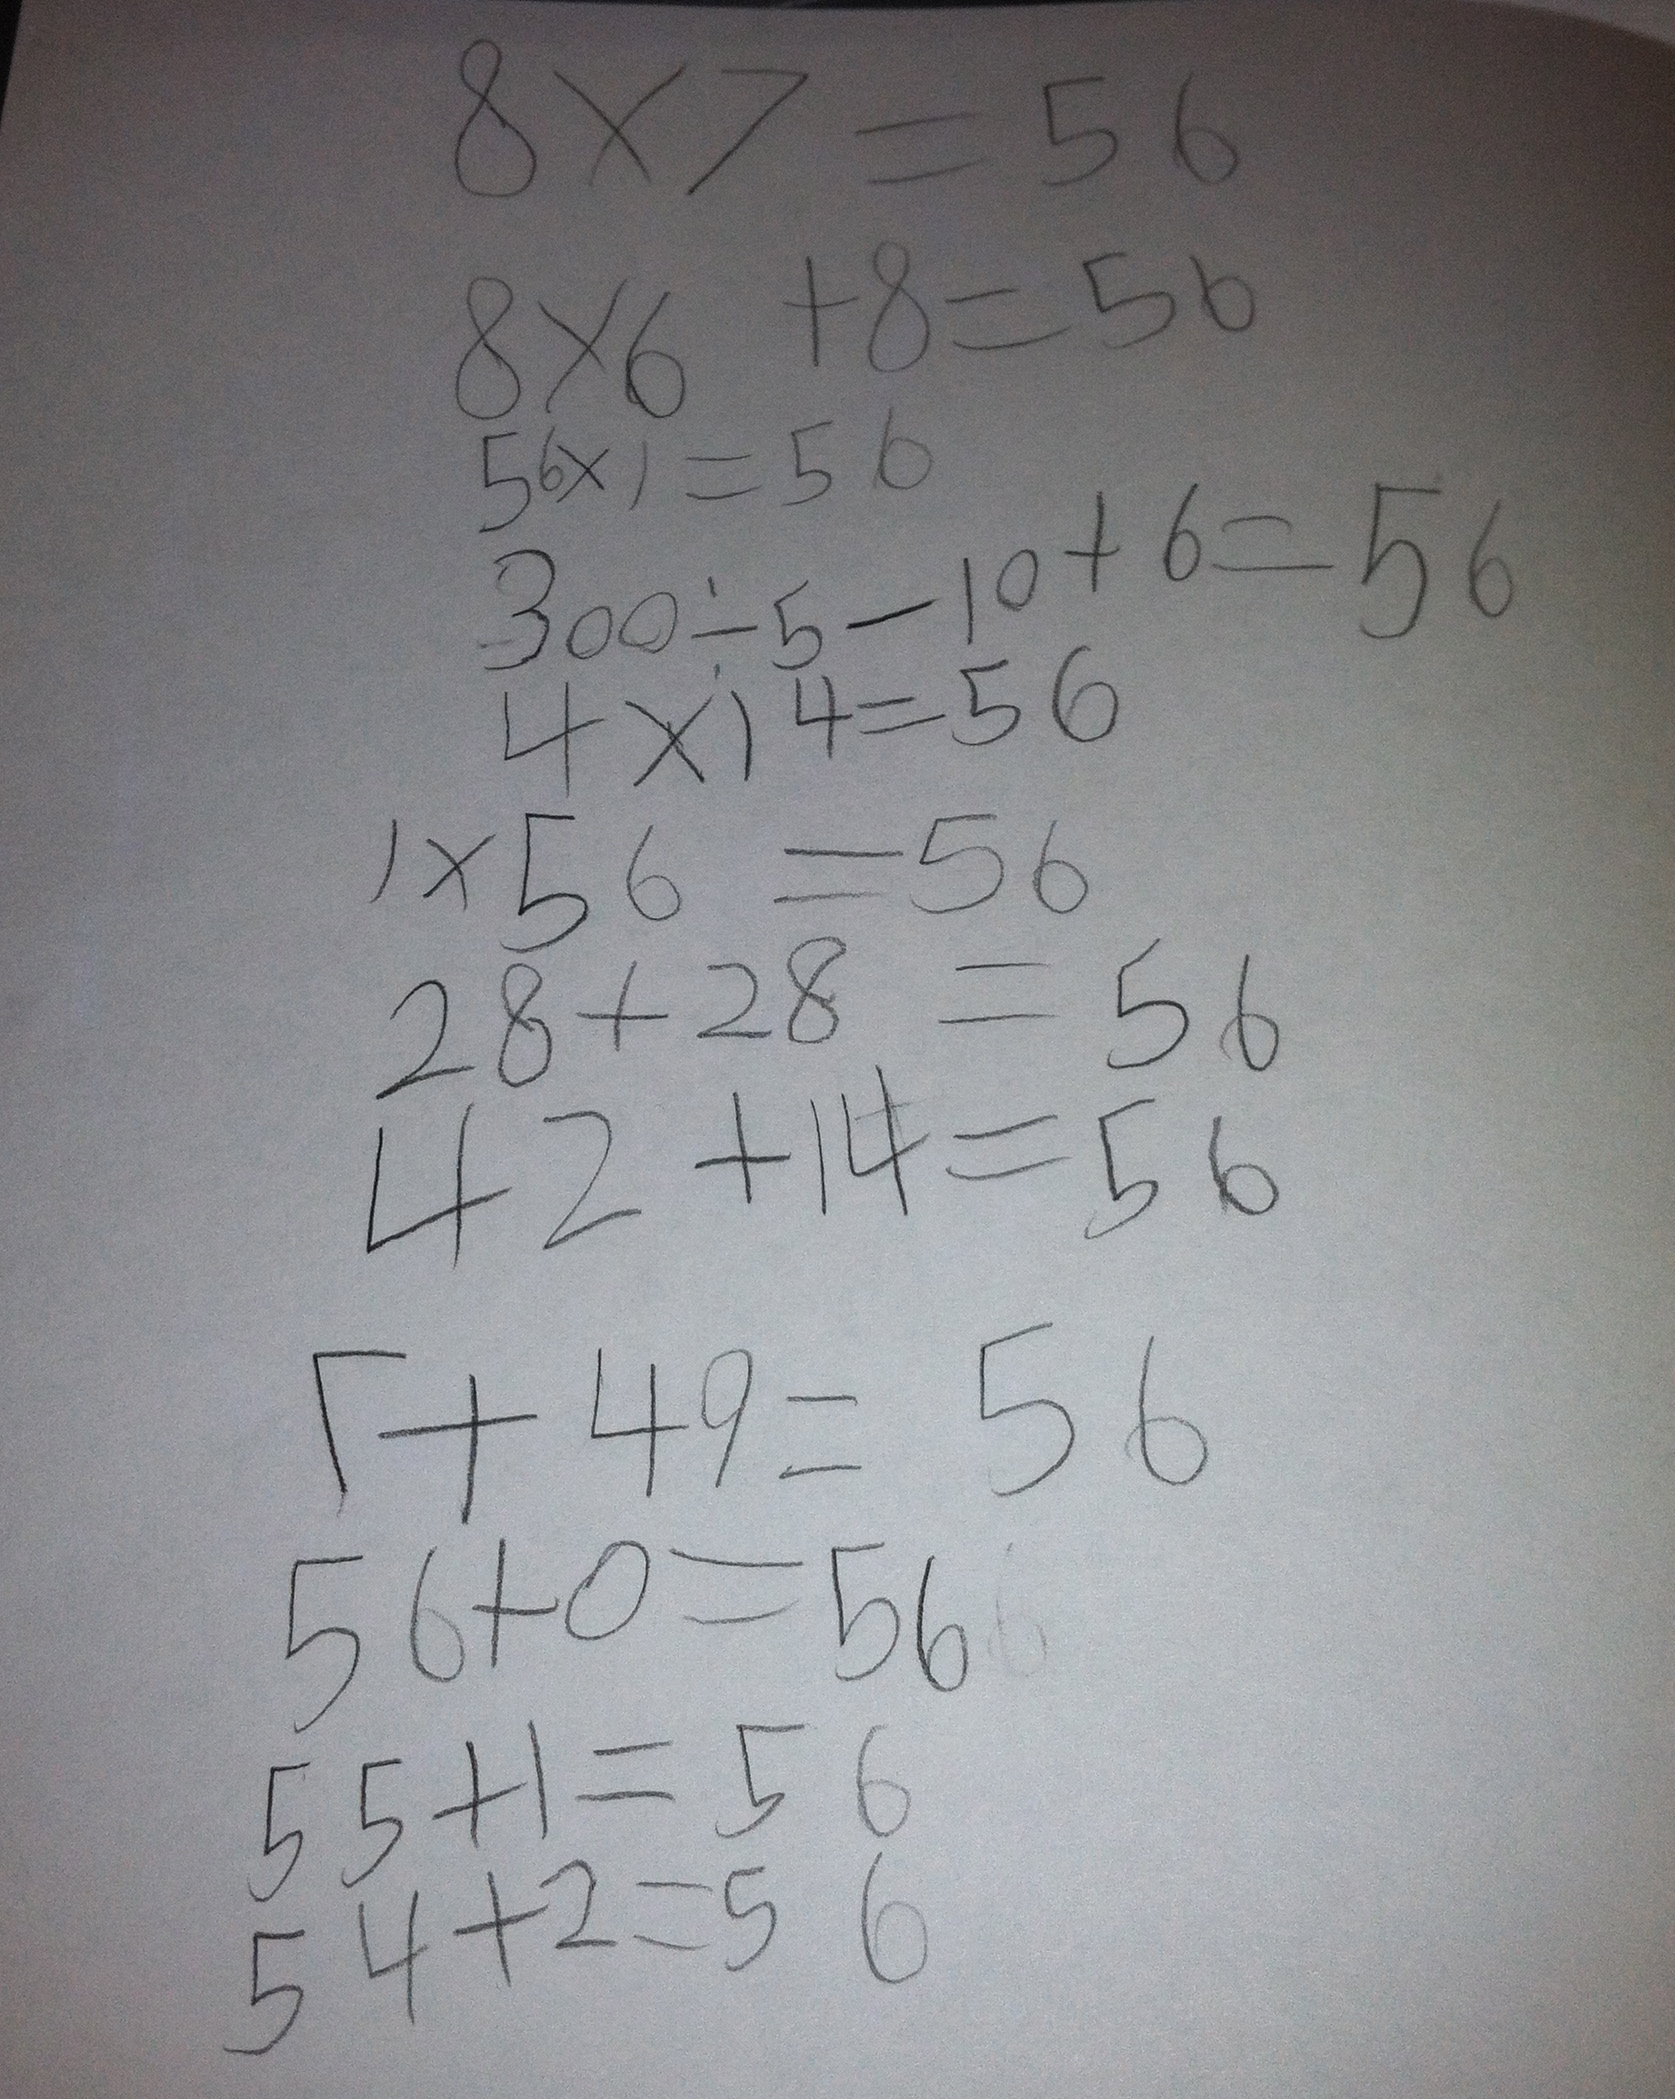 8×7=56
8×6 +8=56
56×1=56
300÷5-10+6=56
4×14=56
1×56=56
28+28=56
42+14=56
7+49=56
56+0=56
55+1=56
54+2=56